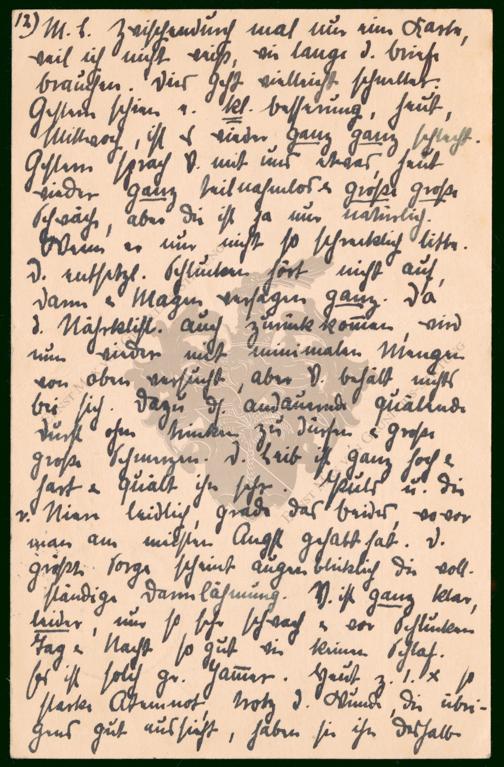 12) M. L. Zwischendurch mal nur eine Karte,
weil ich nicht weiß, wie lange d. Briefe
brauchen. Dies geht vielleicht schneller.
Gestern schien e. kl. Besserung, heut,
Mittwoch, ist es wieder ganz ganz schlecht.
Gestern sprach V. mit uns etwas, heut
wieder ganz teilnahmslos & große große
Schwäche, aber die ist ja nur natürlich.
Wenn er nur nicht so schrecklich litte.
D. entsetzl. Schlucken hört nicht auf,
Darm & Magen versagen ganz. Da
d. Nährklist. auch zurückkommen, wird
nun wieder mit minimalen Mengen
von oben versucht, aber V. behält nichts
bei sich. Dazu d. andauernde quälende
Durst ohne trinken zu dürfen & große
große Schmerzen. D. Leib ist ganz hoch &
hart & quält ihn sehr. Puls u. die
r. Niere leidlich, grade das beides, wovor
man am meisten Angst gehabt hat. D.
größte Sorge scheint augenblicklich die voll-
ständige Darmlähmung. V. ist ganz klar,
leider, nur so sehr schwach & vor Schlucken
Tag & Nacht so gut wie keinen Schlaf.
Es ist solch gr. Jammer. Heut z. 1. x so
starke Atemnot, trotz d. Wunde, die übri-
gens gut aussieht, haben sie ihn deshalb